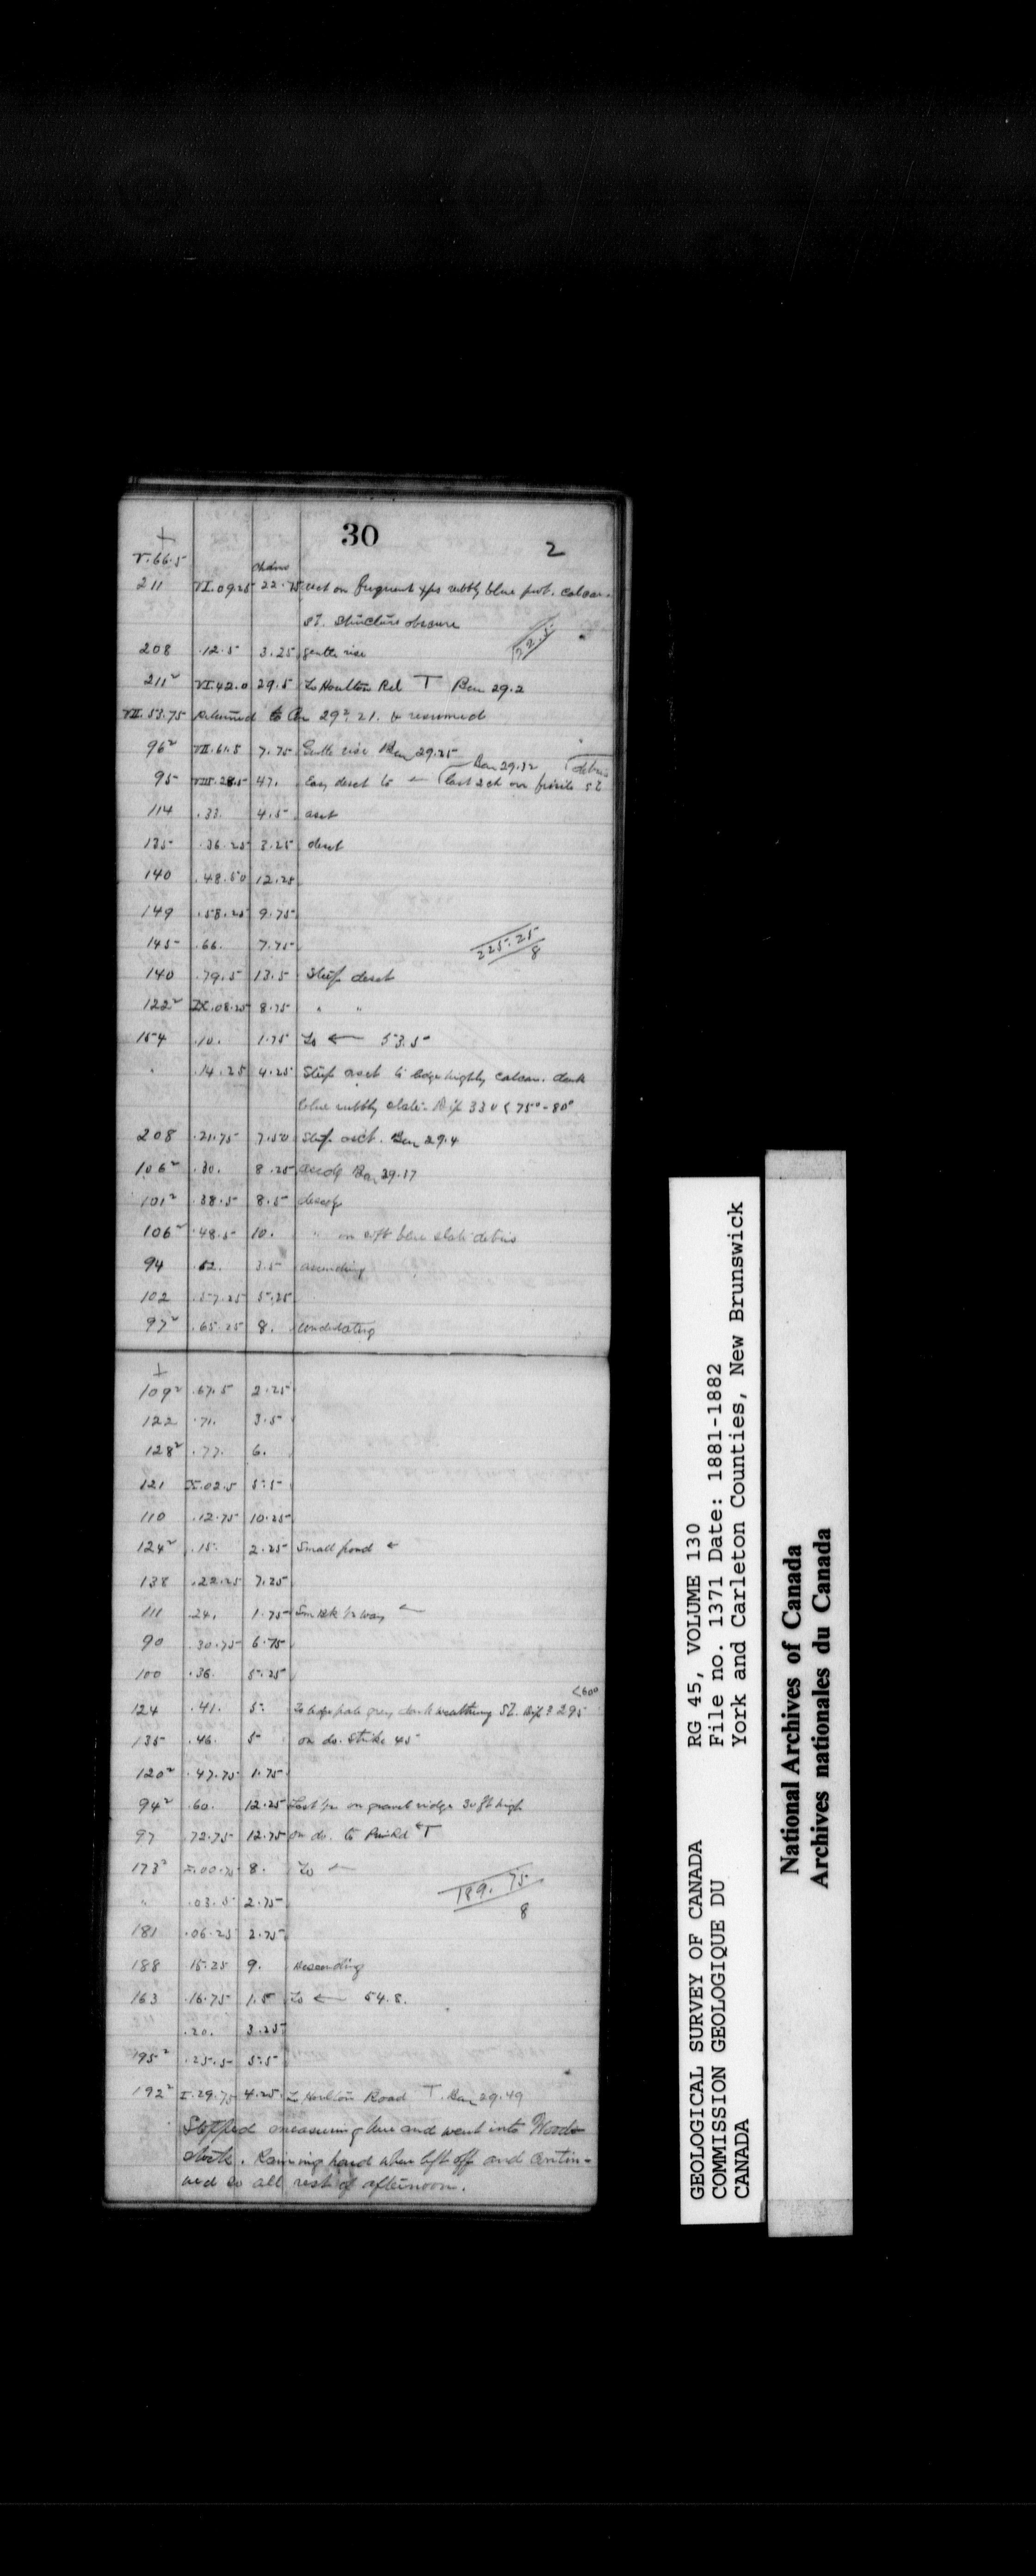 30
2
+
V.66.5
chains
211 VI.09.25 22.75 asct on frequent xps rubbly blue prob. calcar.
Sl. Structure obscure
22.5
208 .12.5 3.25 gentle rise
211² VI.42.0 29.5 To Houlton Rd T Bar 29.2
VII.53.75 Returned to 29².21. & resumed
96² VII.61.5 7.75 Gentle rise Bar 29.25
Bar 29.32 debris
95 VIII.28.5 47. Easy desct to ← (last 2 ch on fissile Sl
114 .33. 4.5 asct
135 .36.25 3.25 desct
140 .48.50 12.25
149 .58.25 9.75
145 .66. 7.75
225.25
8
140 .79.5 13.5 Steep desct
122² IX.08.25 8.75 " "
154 .10. 1.75 To ← 53.5
" .14.25 4.25 Steep asct to ledge highly calcar. dark
blue rubbly slate. Dip 330 < 75°-80°
208 .21.75 7.50 Steep asct. Bar 29.4
106² .30. 8.25 ascdg Bar 29.37
101² .38.5 8.5 descdg
106² .48.5 10. " on soft blue slate debris
94 .52. 3.5 ascending
102 .57.25 5.25
97² .65.25 8. undulating
+
109² .67.5 2.25
122 .71. 3.5
128² .77. 6.
121 X.02.5 5.5
110 .12.75 10.25
124² .15. 2.25 Small pond ←
138 .22.25 7.25
111 .24. 1.75 Sm bk ½ way ←
90 .30.75 6.75
100 .36. 5.25
<60°
124 .41. 5. To ledge pale grey dark weathering Sl. Dip ? 295
135 .46. 5 on do. Strike 45
120² .47.75 1.75
94² .60. 12.25 Last ½ on gravel ridge 30 ft high
97 .72.75 12.75 on do. to Rd T
173² .00.75 8. To ←
189.75
8
" .03.5 2.75
181 .06.25 2.75
188 15.25 9. Descending
163 .16.75 1.5 To ← 54.8.
.20. 3.25
195² .25.5 5.5
192² I.29.75 4.25 To Houlton Road T. Bar 29.49
Stopped measuring here and went into Wood-
stock. Raining hard when left off and contin-
ued so all rest of afternoon.
GEOLOGICAL SURVEY OF CANADA RG 45, VOLUME 130
COMMISSION GEOLOGIQUE DU File no. 1371 Date: 1881-1882
CANADA York and Carleton Counties, New Brunswick
National Archives of Canada
Archives nationales du Canada